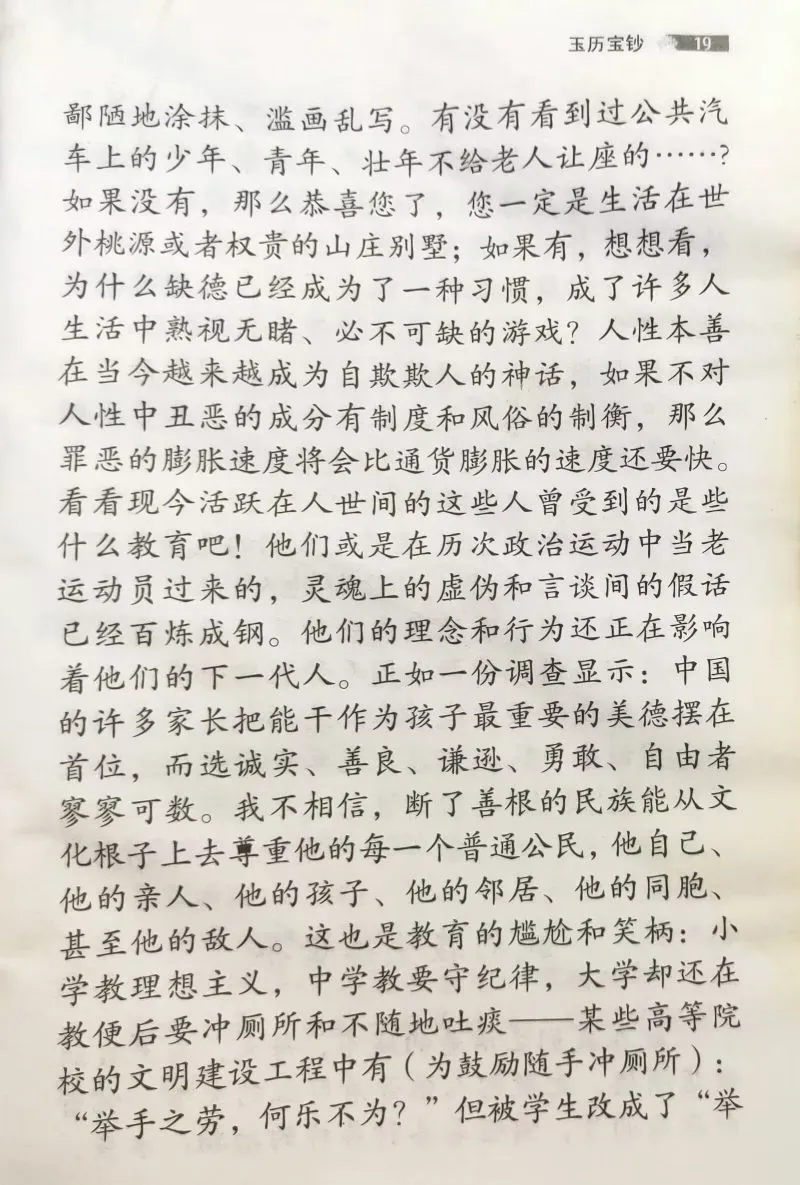 玉历宝钞 19
鄙陋地涂抹、滥画乱写。有没有看到过公共汽
车上的少年、青年、壮年不给老人让座的……?
如果没有，那么恭喜您了，您一定是生活在世
外桃源或者权贵的山庄别墅；如果有，想想看，
为什么缺德已经成为了一种习惯，成了许多人
生活中熟视无睹、必不可缺的游戏？人性本善
在当今越来越成为自欺欺人的神话，如果不对
人性中丑恶的成分有制度和风俗的制衡，那么
罪恶的膨胀速度将会比通货膨胀的速度还要快。
看看现今活跃在人世间的这些人曾受到的是些
什么教育吧！他们或是在历次政治运动中当老
运动员过来的，灵魂上的虚伪和言谈间的假话
已经百炼成钢。他们的理念和行为还正在影响
着他们的下一代人。正如一份调查显示：中国
的许多家长把能干作为孩子最重要的美德摆在
首位，而选诚实、善良、谦逊、勇敢、自由者
寥寥可数。我不相信，断了善根的民族能从文
化根子上去尊重他的每一个普通公民，他自己、
他的亲人、他的孩子、他的邻居、他的同胞、
甚至他的敌人。这也是教育的尴尬和笑柄：小
学教理想主义，中学教要守纪律，大学却还在
教便后要冲厕所和不随地吐痰——某些高等院
校的文明建设工程中有（为鼓励随手冲厕所）：
“举手之劳，何乐不为？”但被学生改成了“举